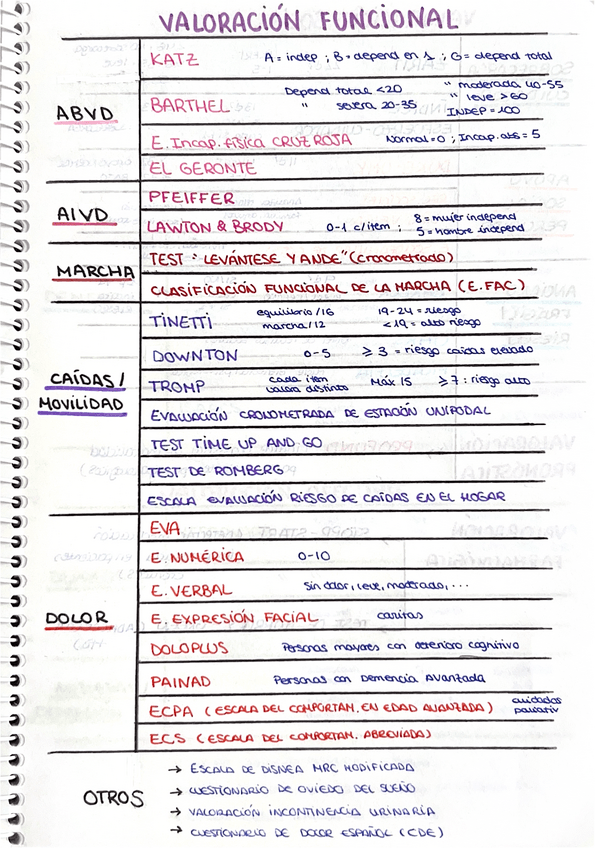 VALORACIÓN FUNCIONAL
ABVD
KATZ A = indep ; B = depend en 1 ; G = depend total
BARTHEL Depend total <20 " moderada 40-55
" severa 20-35 " leve > 60
INDEP = 100
E. Incap. física CRUZ ROJA Normal = 0 ; Incap. abs = 5
EL GERONTE
AIVD
PFEIFFER
LAWTON & BRODY 0-1 c/item ; 8 = mujer independ
5 = hombre independ
MARCHA
TEST "LEVÁNTESE Y ANDE" (cronometrado)
CLASIFICACIÓN FUNCIONAL DE LA MARCHA (E. FAC)
CAÍDAS / MOVILIDAD
TINETTI equilibrio /16 19-24 = riesgo
marcha /12 < 19 = alto riesgo
DOWNTON 0-5 ≥ 3 = riesgo caídas elevado
TROMP cada item MÁX 15 ≥ 7 : riesgo alto
valora distinto
EVALUACIÓN CROLOMETRADA DE ESTACIÓN UNIPODAL
TEST TIME UP AND GO
TEST DE ROMBERG
ESCALA EVALUACIÓN RIESGO DE CAÍDAS EN EL HOGAR
DOLOR
EVA
E. NUMÉRICA 0-10
E. VERBAL Sin dolor, leve, moderado, ...
E. EXPRESIÓN FACIAL caritas
DOLOPLUS Personas mayores con deterioro cognitivo
PAINAD Personas con Demencia Avanzada
ECPA (ESCALA DEL COMPORTAM. EN EDAD AVANZADA) cuidados
paliativ
ECS (ESCALA DEL COMPORTAM. ABREVIADA)
OTROS
→ ESCALA DE DISNEA MRC MODIFICADA
→ CUESTIONARIO DE OVIEDO DEL SUEÑO
→ VALORACIÓN INCONTINENCIA URINARIA
→ CUESTIONARIO DE DOLOR ESPAÑOL (CDE)